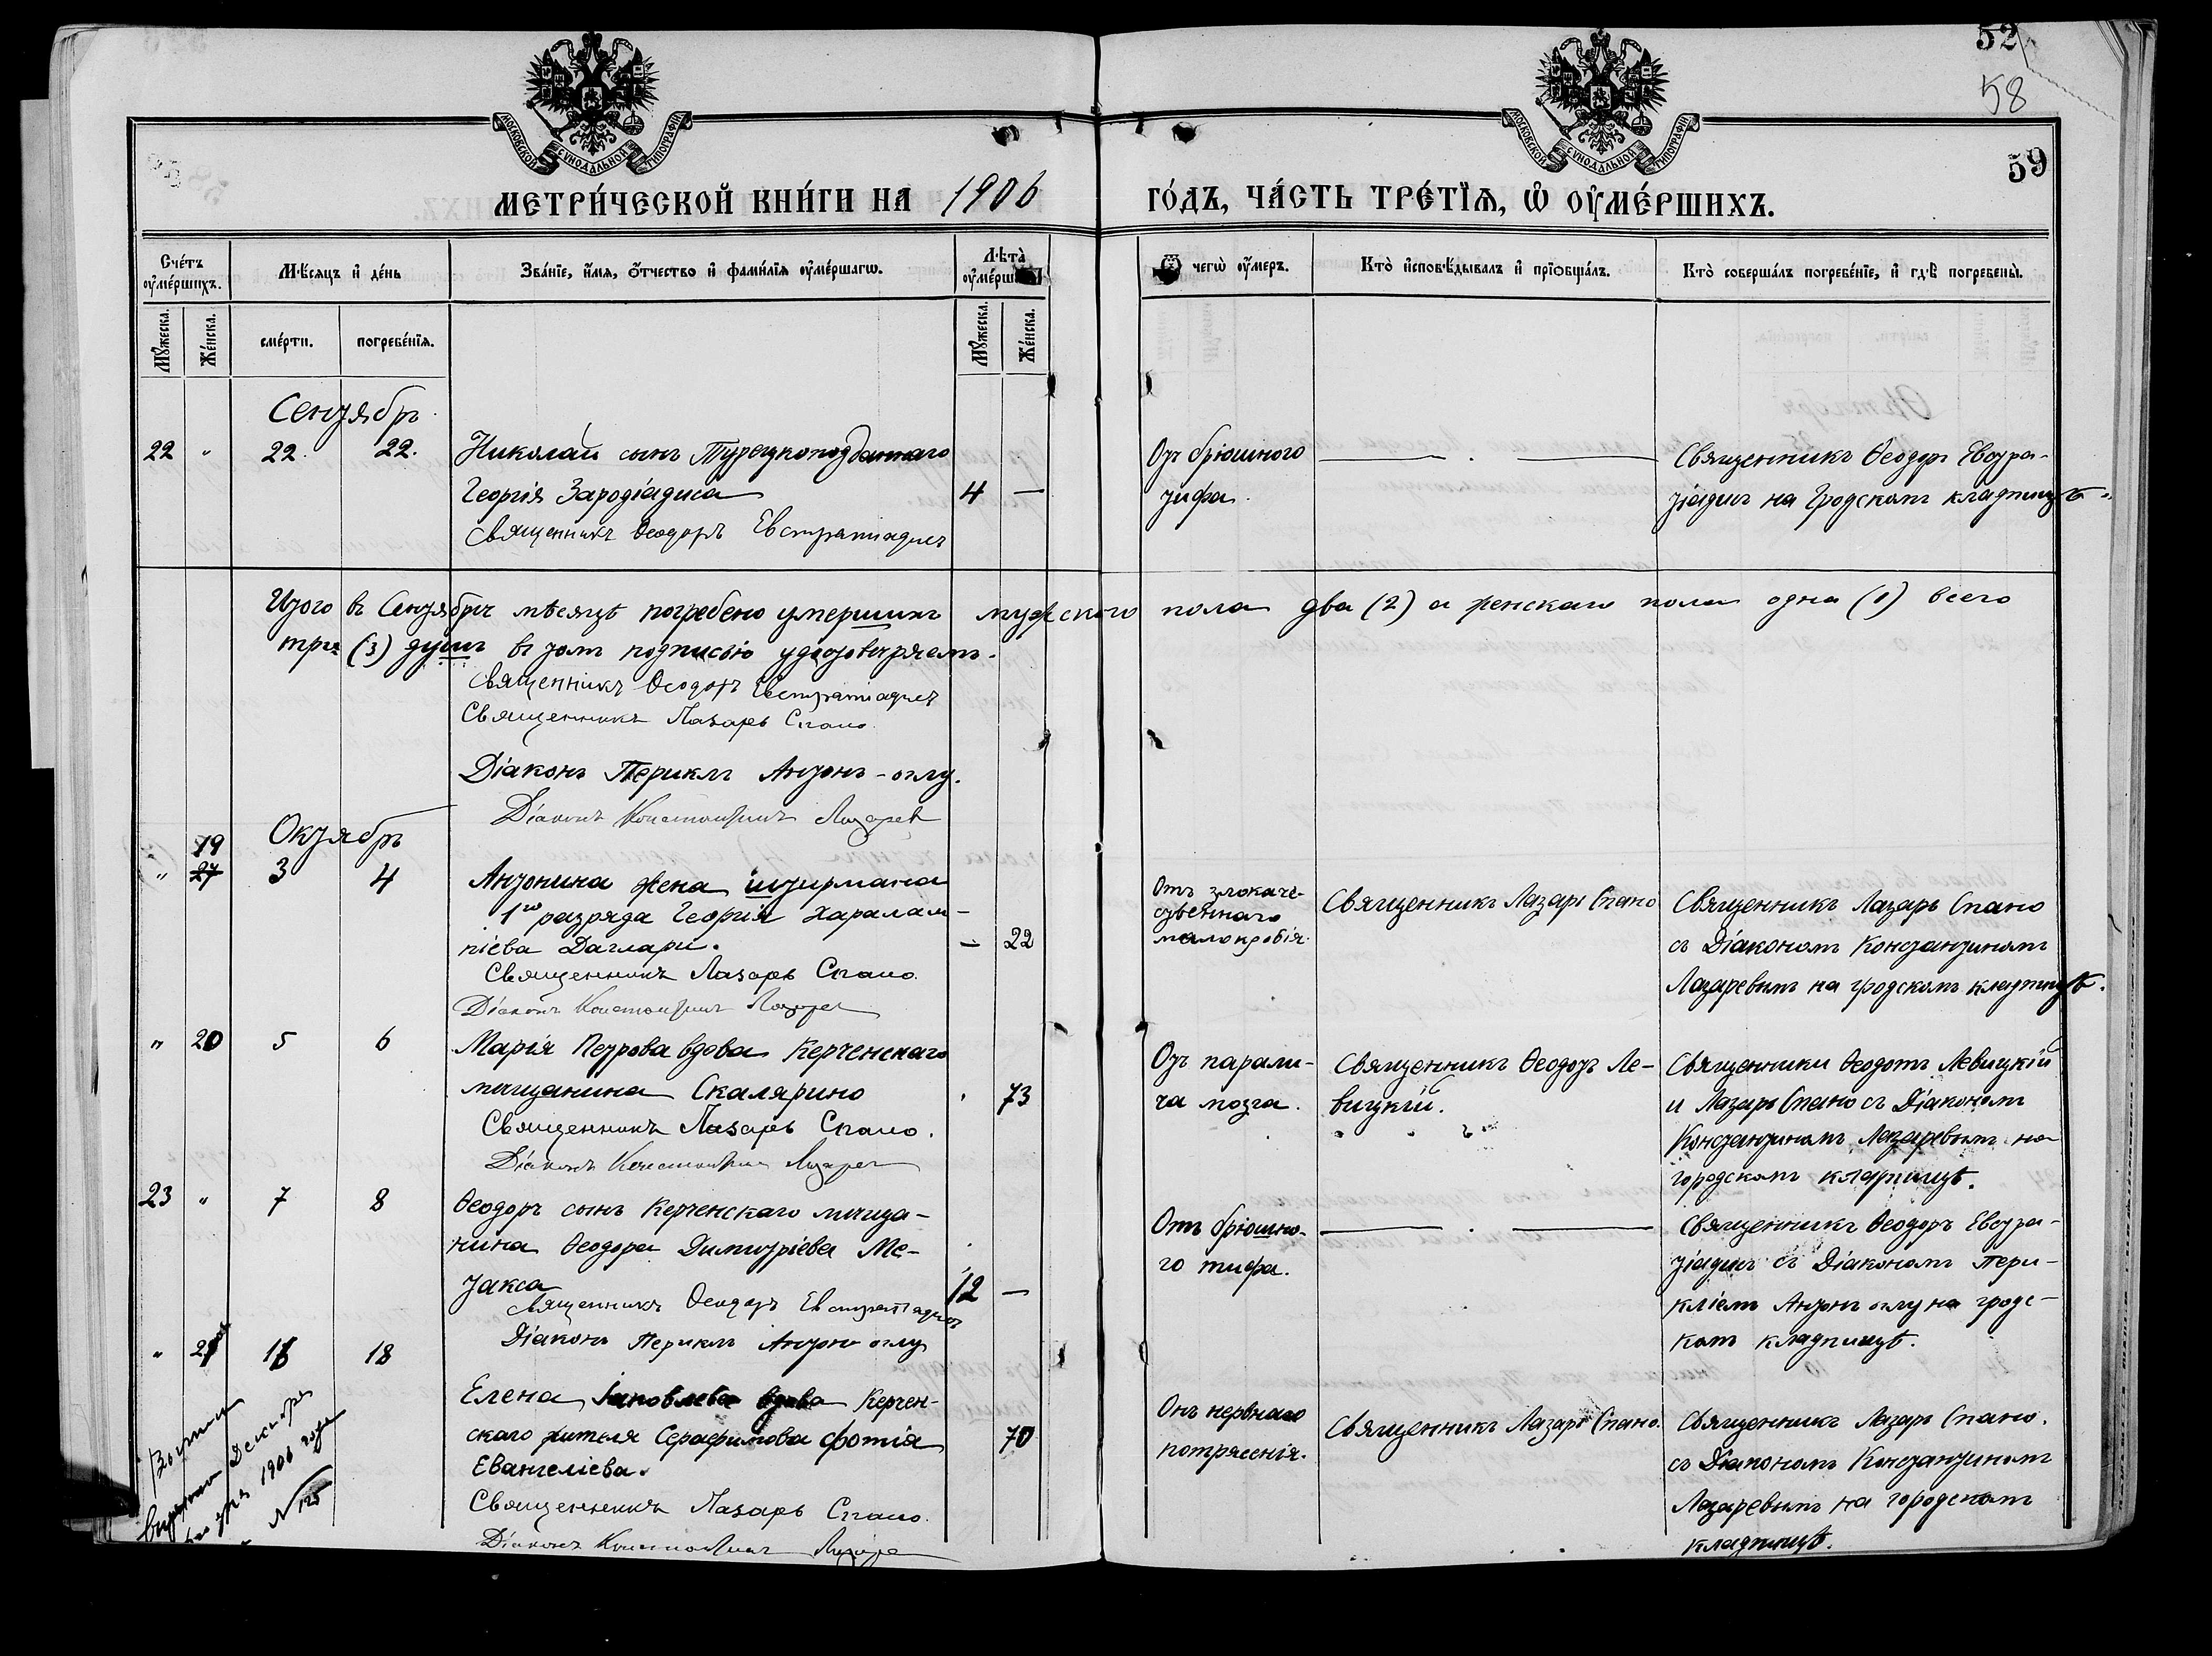 52
58
59
МОСКОВСКОЙ СѴНОДАЛЬНОЙ ТИПОГРАФІИ
МОСКОВСКОЙ СѴНОДАЛЬНОЙ ТИПОГРАФІИ
МЕТРИ́ЧЕСКОЙ КНИ́ГИ НА 1906 ГО́ДЪ, ЧА́СТЬ ТРЕ́ТІѦ, Ѡ҆ ОУ҆МЕ́РШИХЪ.
Сче́тъ оу҆ме́ршихъ.
Мѣ́сяцъ и҆ де́нь
Зва́ніе, и҆́мя, ѻ҆́тчество и҆ фами́лія оу҆ме́ршагѡ.
Лѣта̀ оу҆ме́рша
Ѿ чегѡ̀ оу҆́меръ.
Кто̀ и҆сповѣ́дывалъ и҆ прїѡбща́лъ.
Кто̀ соверша́лъ погребе́ніе, и҆ гдѣ̀ погребены̀.
Мꙋ́жеска.
Же́нска.
сме́рти.
погребе́нїя.
Мꙋ́жеска.
Же́нска.
Сентябрь
22 " 22. 22.
Николай сынъ Турецкоподданнаго
Георгія Зародіадиса
4 —
Священникъ Ѳеодоръ Евстратіадисъ
От брюшного
тифа.
Священникъ Ѳеодоръ Евстра-
тіадисъ на Гродскомъ кладпищѣ
Итого въ Сентябрѣ мѣсяцѣ погребено умершихъ мужского пола два (2) а женскаго пола одна (1) всего
три (3) душъ въ томъ подписью удостовѣряемъ.
Священникъ Ѳеодоръ Евстратіадисъ
Священникъ Лазарь Спано.
Діаконъ Периклъ Антонъ-оглу.
Діаконъ Константинъ Лазарев
Октябрь
19
" 27 3 4
Антонина жена штурмана
1го разряда Георгія Харалам-
піева Даглари.
— 22
Священникъ Лазарь Спано.
Діаконъ Константинъ Лазарев
Отъ злокаче-
ственнаго
малокровія.
Священникъ Лазарь Спано
Священникъ Лазарь Спано
съ Діакономъ Константиномъ
Лазаревымъ на гродскомъ кладпищѣ.
" 20 5 6
Марія Петрова вдова Керченскаго
мѣщанина Скалярино
73
Священникъ Лазарь Спано.
Діаконъ Константинъ Лазарев
От парали-
ча мозга.
Священникъ Ѳеодотъ Ле-
вицкій.
Священники Ѳеодотъ Левицкій
и Лазарь Спано съ Діакономъ
Константиномъ Лазаревымъ на
городскомъ кладпищѣ.
23 " 7 8
Ѳеодоръ сынъ Керченскаго мѣща-
нина Ѳеодора Димитріева Ме-
такса
12 —
Священникъ Ѳеодоръ Евстратіадисъ
Діаконъ Периклъ Антонъ оглу
Отъ брюшно-
го тифа.
Священникъ Ѳеодоръ Евстра-
тіадисъ съ Діакономъ Пери-
кліемъ Антонъ оглу на гродс-
комъ кладпищѣ.
" 21 16 18
Елена Іаковлева вдова Керчен-
скаго жителя Серафимова Фотія
Евангеліева.
70
Священникъ Лазарь Спано.
Діаконъ Константинъ Лазарев
Отъ нервнаго
потрясенія.
Священникъ Лазарь Спано.
Священникъ Лазарь Спано.
съ Діакономъ Константиномъ
Лазаревымъ на городскомъ
кладпищѣ.
Декабря
1906 года
N 125